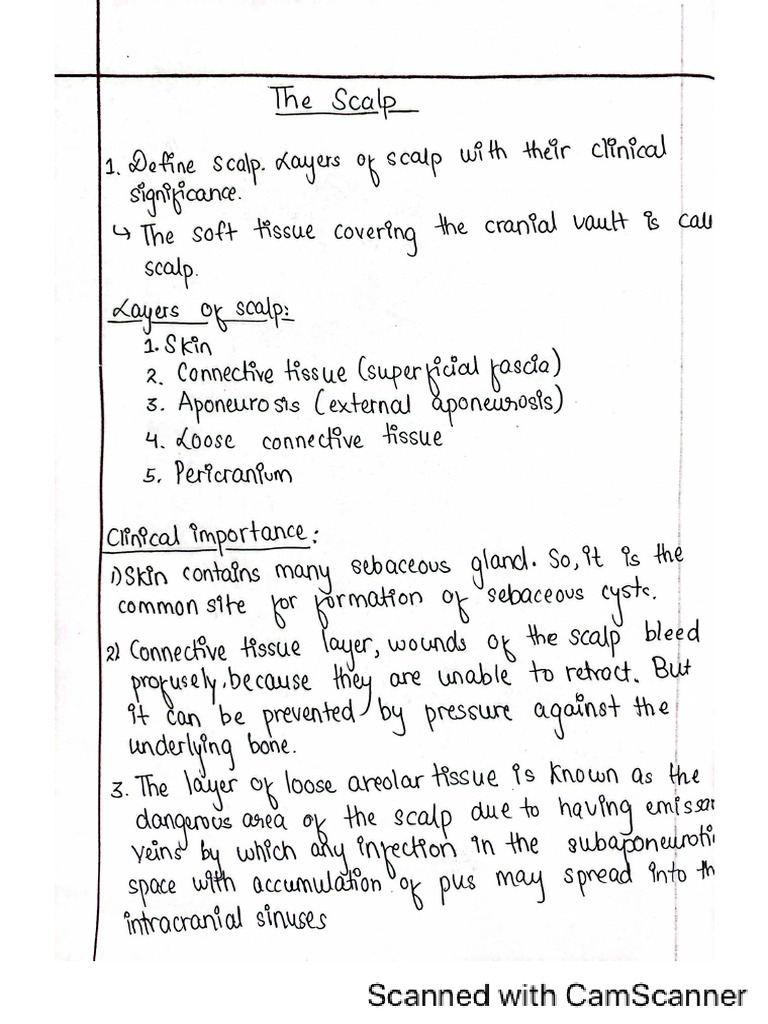 The Scalp
1. Define scalp. Layers of scalp with their clinical
significance.
↳ The soft tissue covering the cranial vault is call
scalp.
Layers of scalp:
1. Skin
2. Connective tissue (superficial fascia)
3. Aponeurosis (external aponeurosis)
4. Loose connective tissue
5. Pericranium
Clinical importance:
1) Skin contains many sebaceous gland. So, it is the
common site for formation of sebaceous cysts.
2) Connective tissue layer, wounds of the scalp bleed
profusely, because they are unable to retract. But
it can be prevented by pressure against the
underlying bone.
3. The layer of loose areolar tissue is known as the
dangerous area of the scalp due to having emissar
veins by which any infection in the subaponeuroti
space with accumulation of pus may spread into th
intracranial sinuses
Scanned with CamScanner